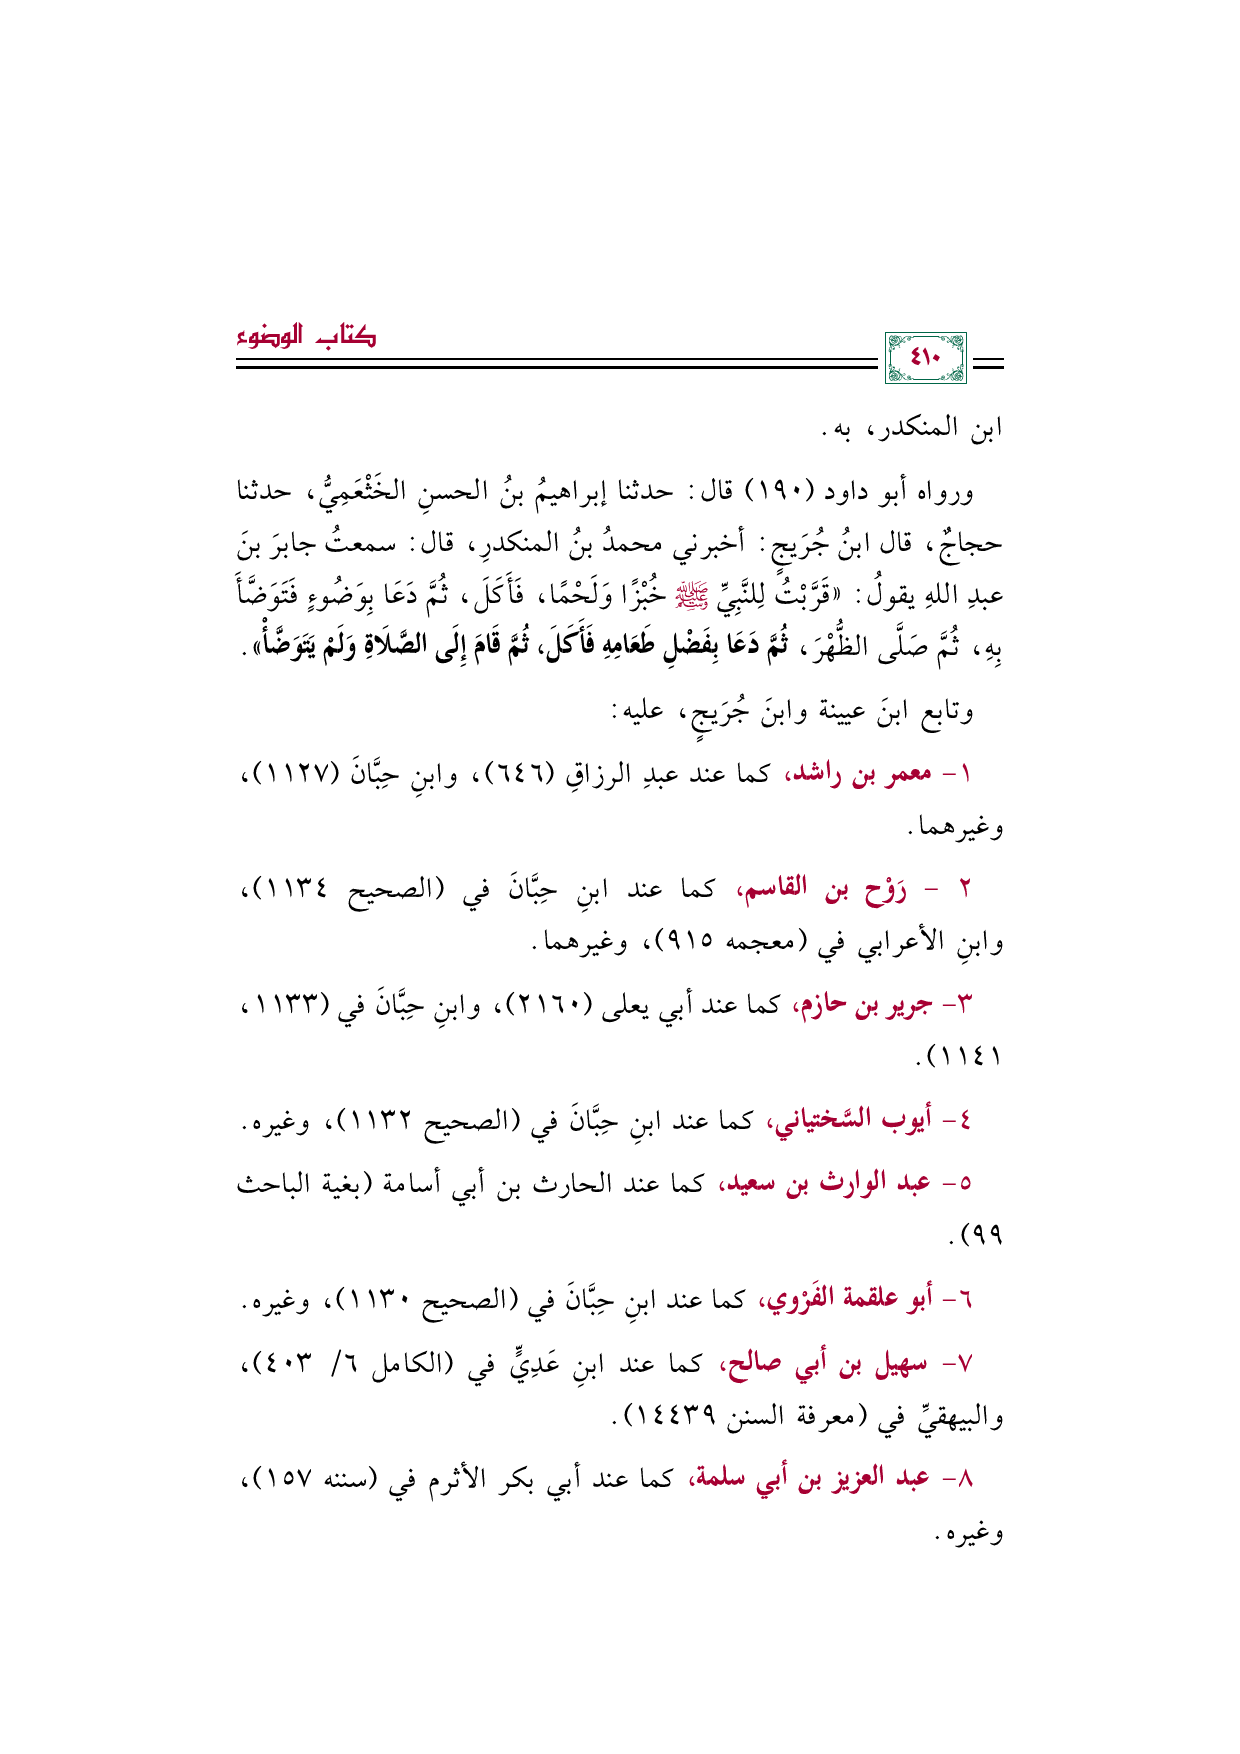 كتاب الوضوء
٤١٠
ابن المنكدر، به.
ورواه أبو داود (١٩٠) قال: حدثنا إبراهيمُ بنُ الحسنِ الخَثْعَمِيُّ، حدثنا
حجاجٌ، قال ابنُ جُرَيجٍ: أخبرني محمدُ بنُ المنكدرِ، قال: سمعتُ جابرَ بنَ
عبدِ اللهِ يقولُ: «قَرَّبْتُ لِلنَّبِيِّ ﷺ خُبْزًا وَلَحْمًا، فَأَكَلَ، ثُمَّ دَعَا بِوَضُوءٍ فَتَوَضَّأَ
بِهِ، ثُمَّ صَلَّى الظُّهْرَ، ثُمَّ دَعَا بِفَضْلِ طَعَامِهِ فَأَكَلَ، ثُمَّ قَامَ إِلَى الصَّلَاةِ وَلَمْ يَتَوَضَّأْ».
وتابع ابنَ عيينة وابنَ جُرَيجٍ، عليه:
١- معمر بن راشد، كما عند عبدِ الرزاقِ (٦٤٦)، وابنِ حِبَّانَ (١١٢٧)،
وغيرهما.
٢ - رَوْح بن القاسم، كما عند ابنِ حِبَّانَ في (الصحيح ١١٣٤)،
وابنِ الأعرابي في (معجمه ٩١٥)، وغيرهما.
٣- جرير بن حازم، كما عند أبي يعلى (٢١٦٠)، وابنِ حِبَّانَ في (١١٣٣،
١١٤١).
٤- أيوب السَّختياني، كما عند ابنِ حِبَّانَ في (الصحيح ١١٣٢)، وغيره.
٥- عبد الوارث بن سعيد، كما عند الحارث بن أبي أسامة (بغية الباحث
٩٩).
٦- أبو علقمة الفَرْوي، كما عند ابنِ حِبَّانَ في (الصحيح ١١٣٠)، وغيره.
٧- سهيل بن أبي صالح، كما عند ابنِ عَدِيٍّ في (الكامل ٦/ ٤٠٣)،
والبيهقيِّ في (معرفة السنن ١٤٤٣٩).
٨- عبد العزيز بن أبي سلمة، كما عند أبي بكر الأثرم في (سننه ١٥٧)،
وغيره.